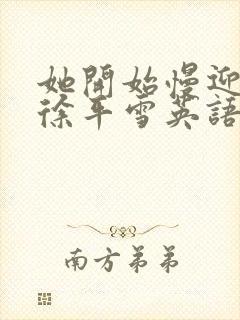 她開始慢迎
徐平雪英語
南方弟弟